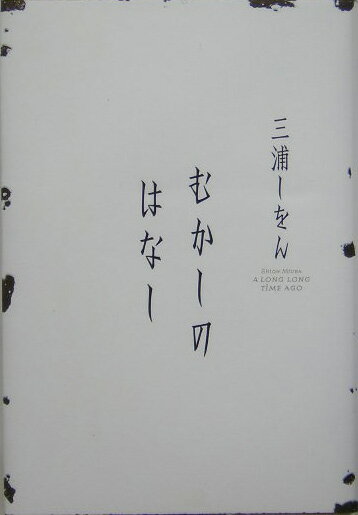 三浦しをん
Shion Miura
A LONG LONG
TIME AGO
むかしの
はなし